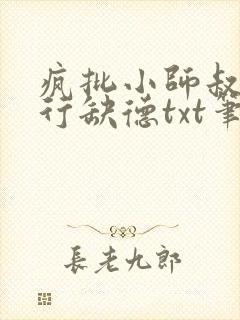 疯批小師叔
行缺德txt筆
長老九郎